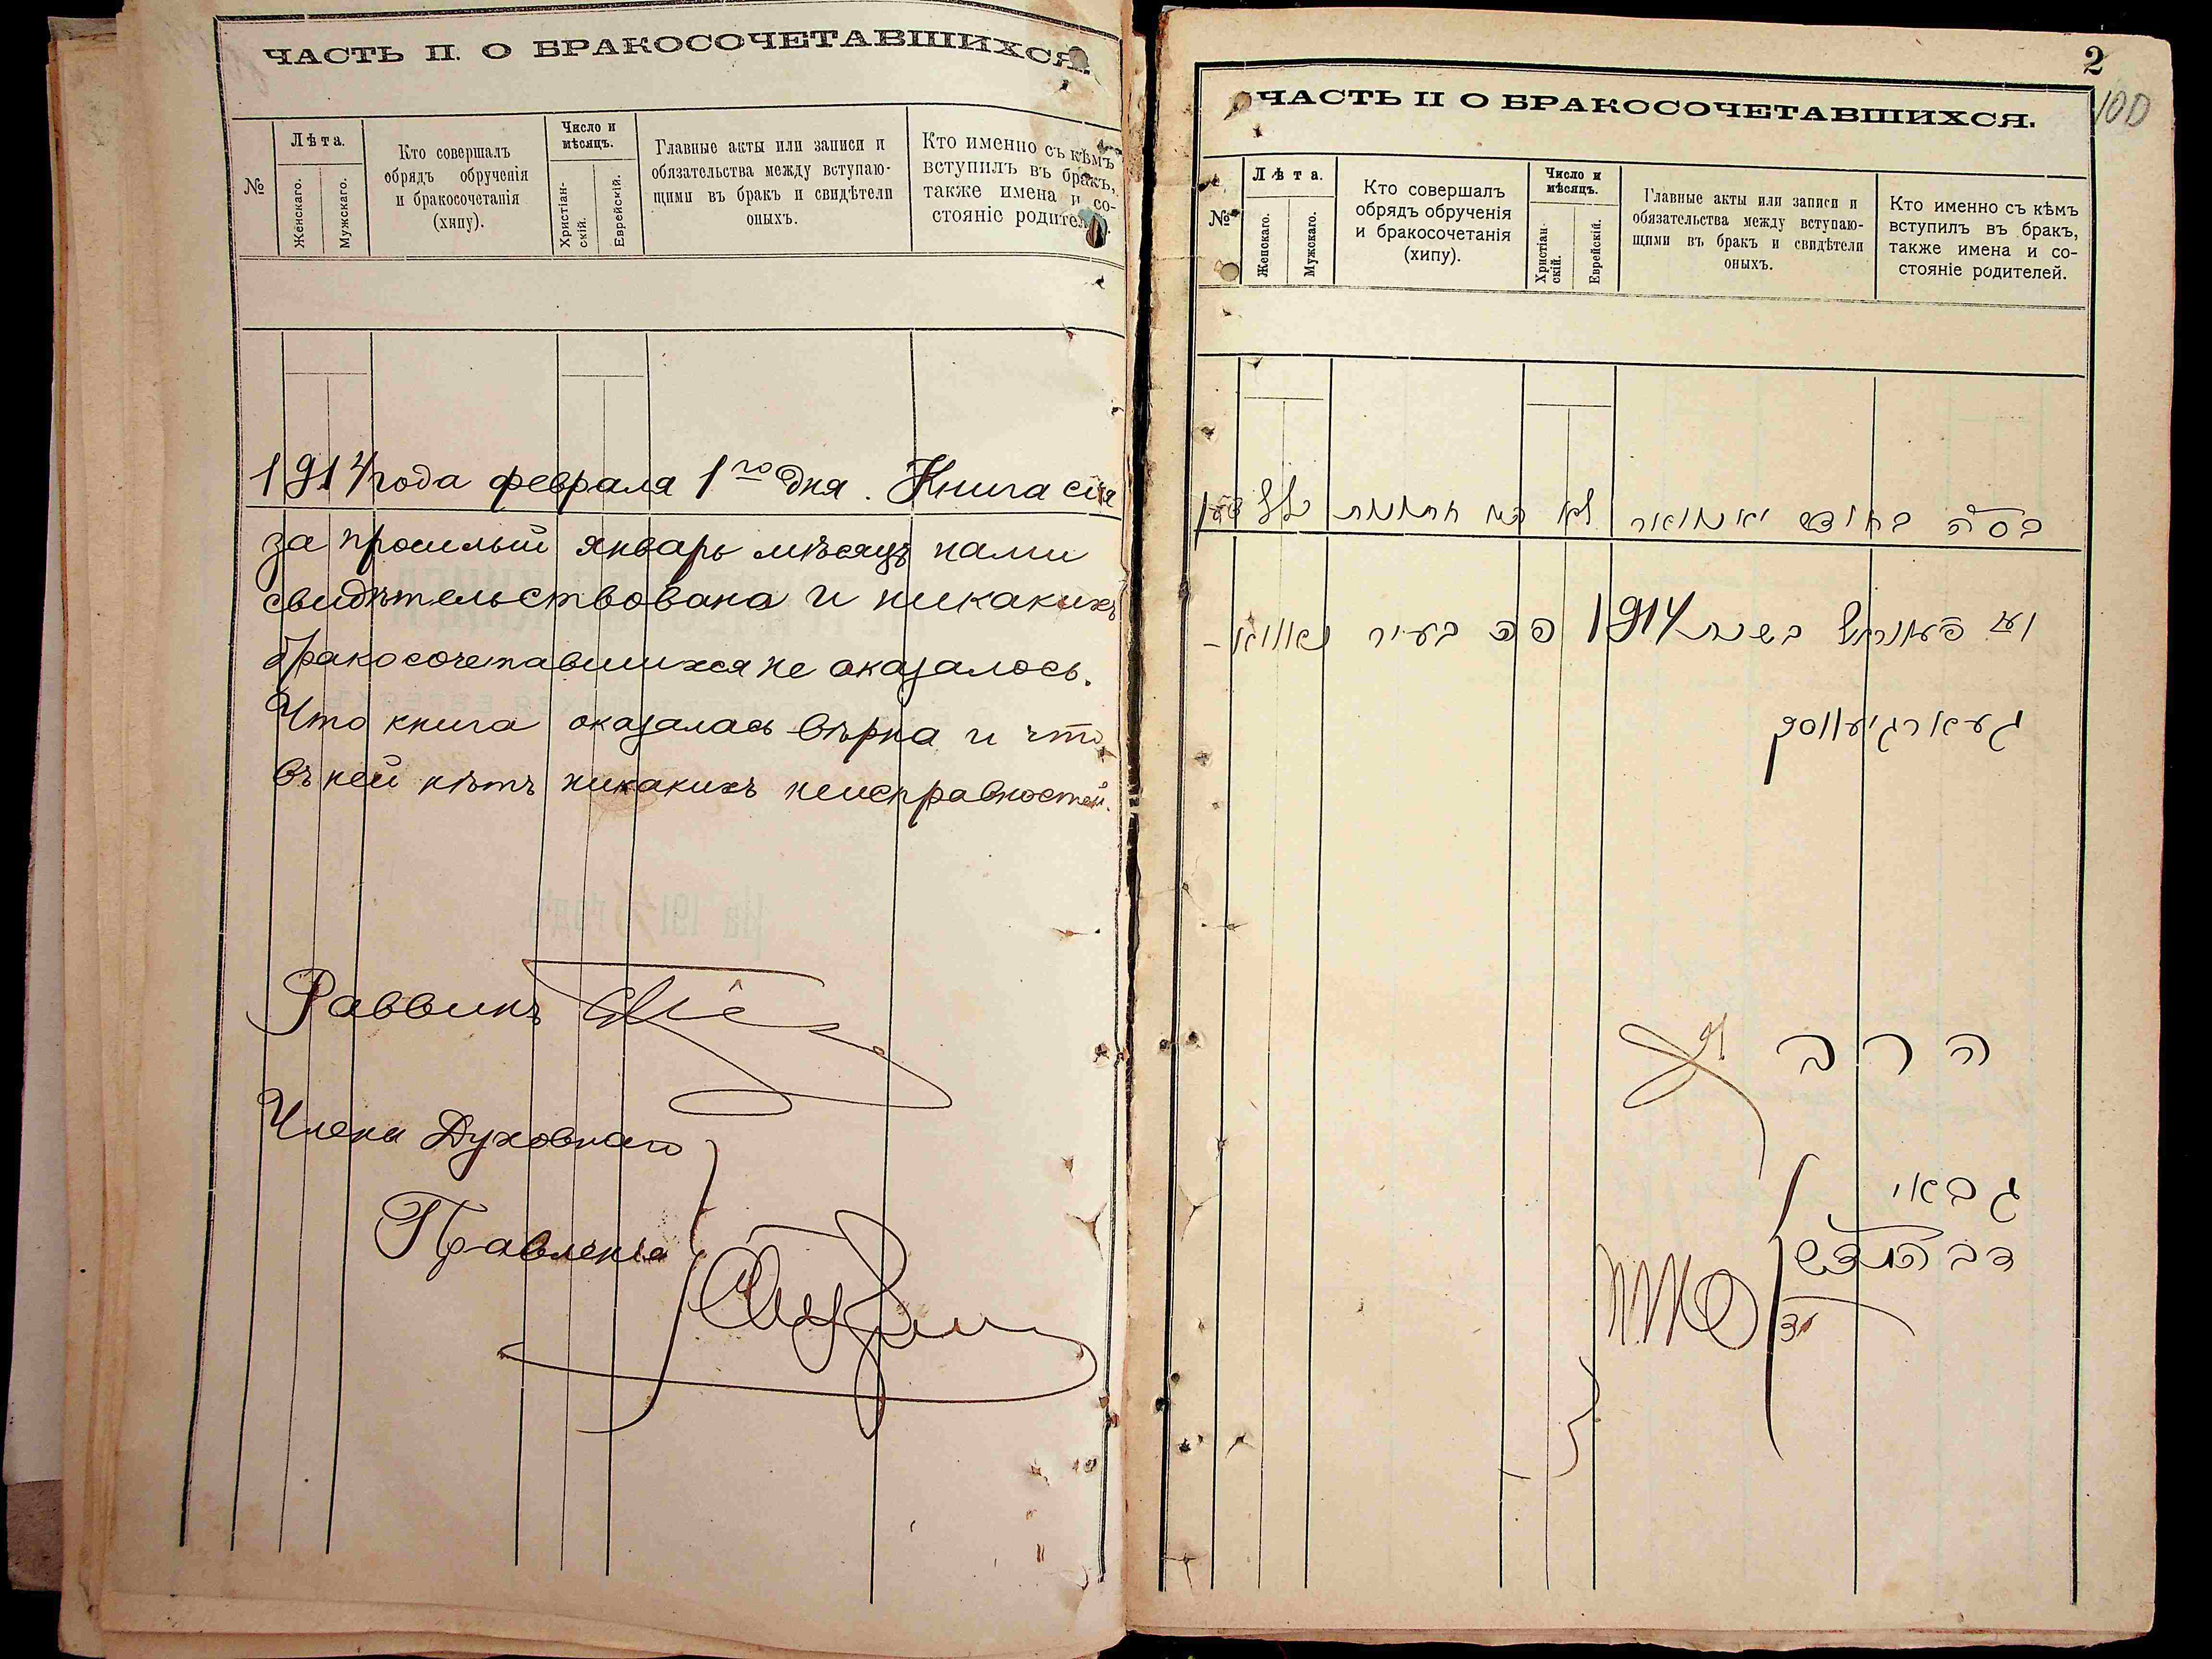 ЧАСТЬ II. О БРАКОСОЧЕТАВШИХСЯ.
№
Лѣта.
Женскаго.
Мужскаго.
Кто совершалъ
обрядъ обрученія
и бракосочетанія
(хипу).
Число и
мѣсяцъ.
Христіан-
скій.
Еврейскій.
Главные акты или записи и
обязательства между вступаю-
щими въ бракъ и свидѣтели
оныхъ.
Кто именно съ кѣмъ
вступилъ въ бракъ,
также имена и со-
стояніе родителей.
1914 года февраля 1го дня. Книга сія
за прошлый январь мѣсяцъ нами
свидѣтельствована и никакихъ
бракосочетавшихся не оказалось.
Что книга оказалась вѣрна и что
въ ней нѣтъ никакихъ неисправностей.
Раввинъ
Члены Духовнаго
Правленія
2
100
ЧАСТЬ II О БРАКОСОЧЕТАВШИХСЯ.
№
Лѣта.
Женскаго.
Мужскаго.
Кто совершалъ
обрядъ обрученія
и бракосочетанія
(хипу).
Число и
мѣсяцъ.
Христіан-
скій.
Еврейскій.
Главные акты или записи и
обязательства между вступаю-
щими въ бракъ и свидѣтели
оныхъ.
Кто именно съ кѣмъ
вступилъ въ бракъ,
также имена и со-
стояніе родителей.
בסה בחודש יאנואר לא
בשנת 1914 פה בעיר נאוואַ-
געארגיעווסק
הרב
גבאי
דב המדש